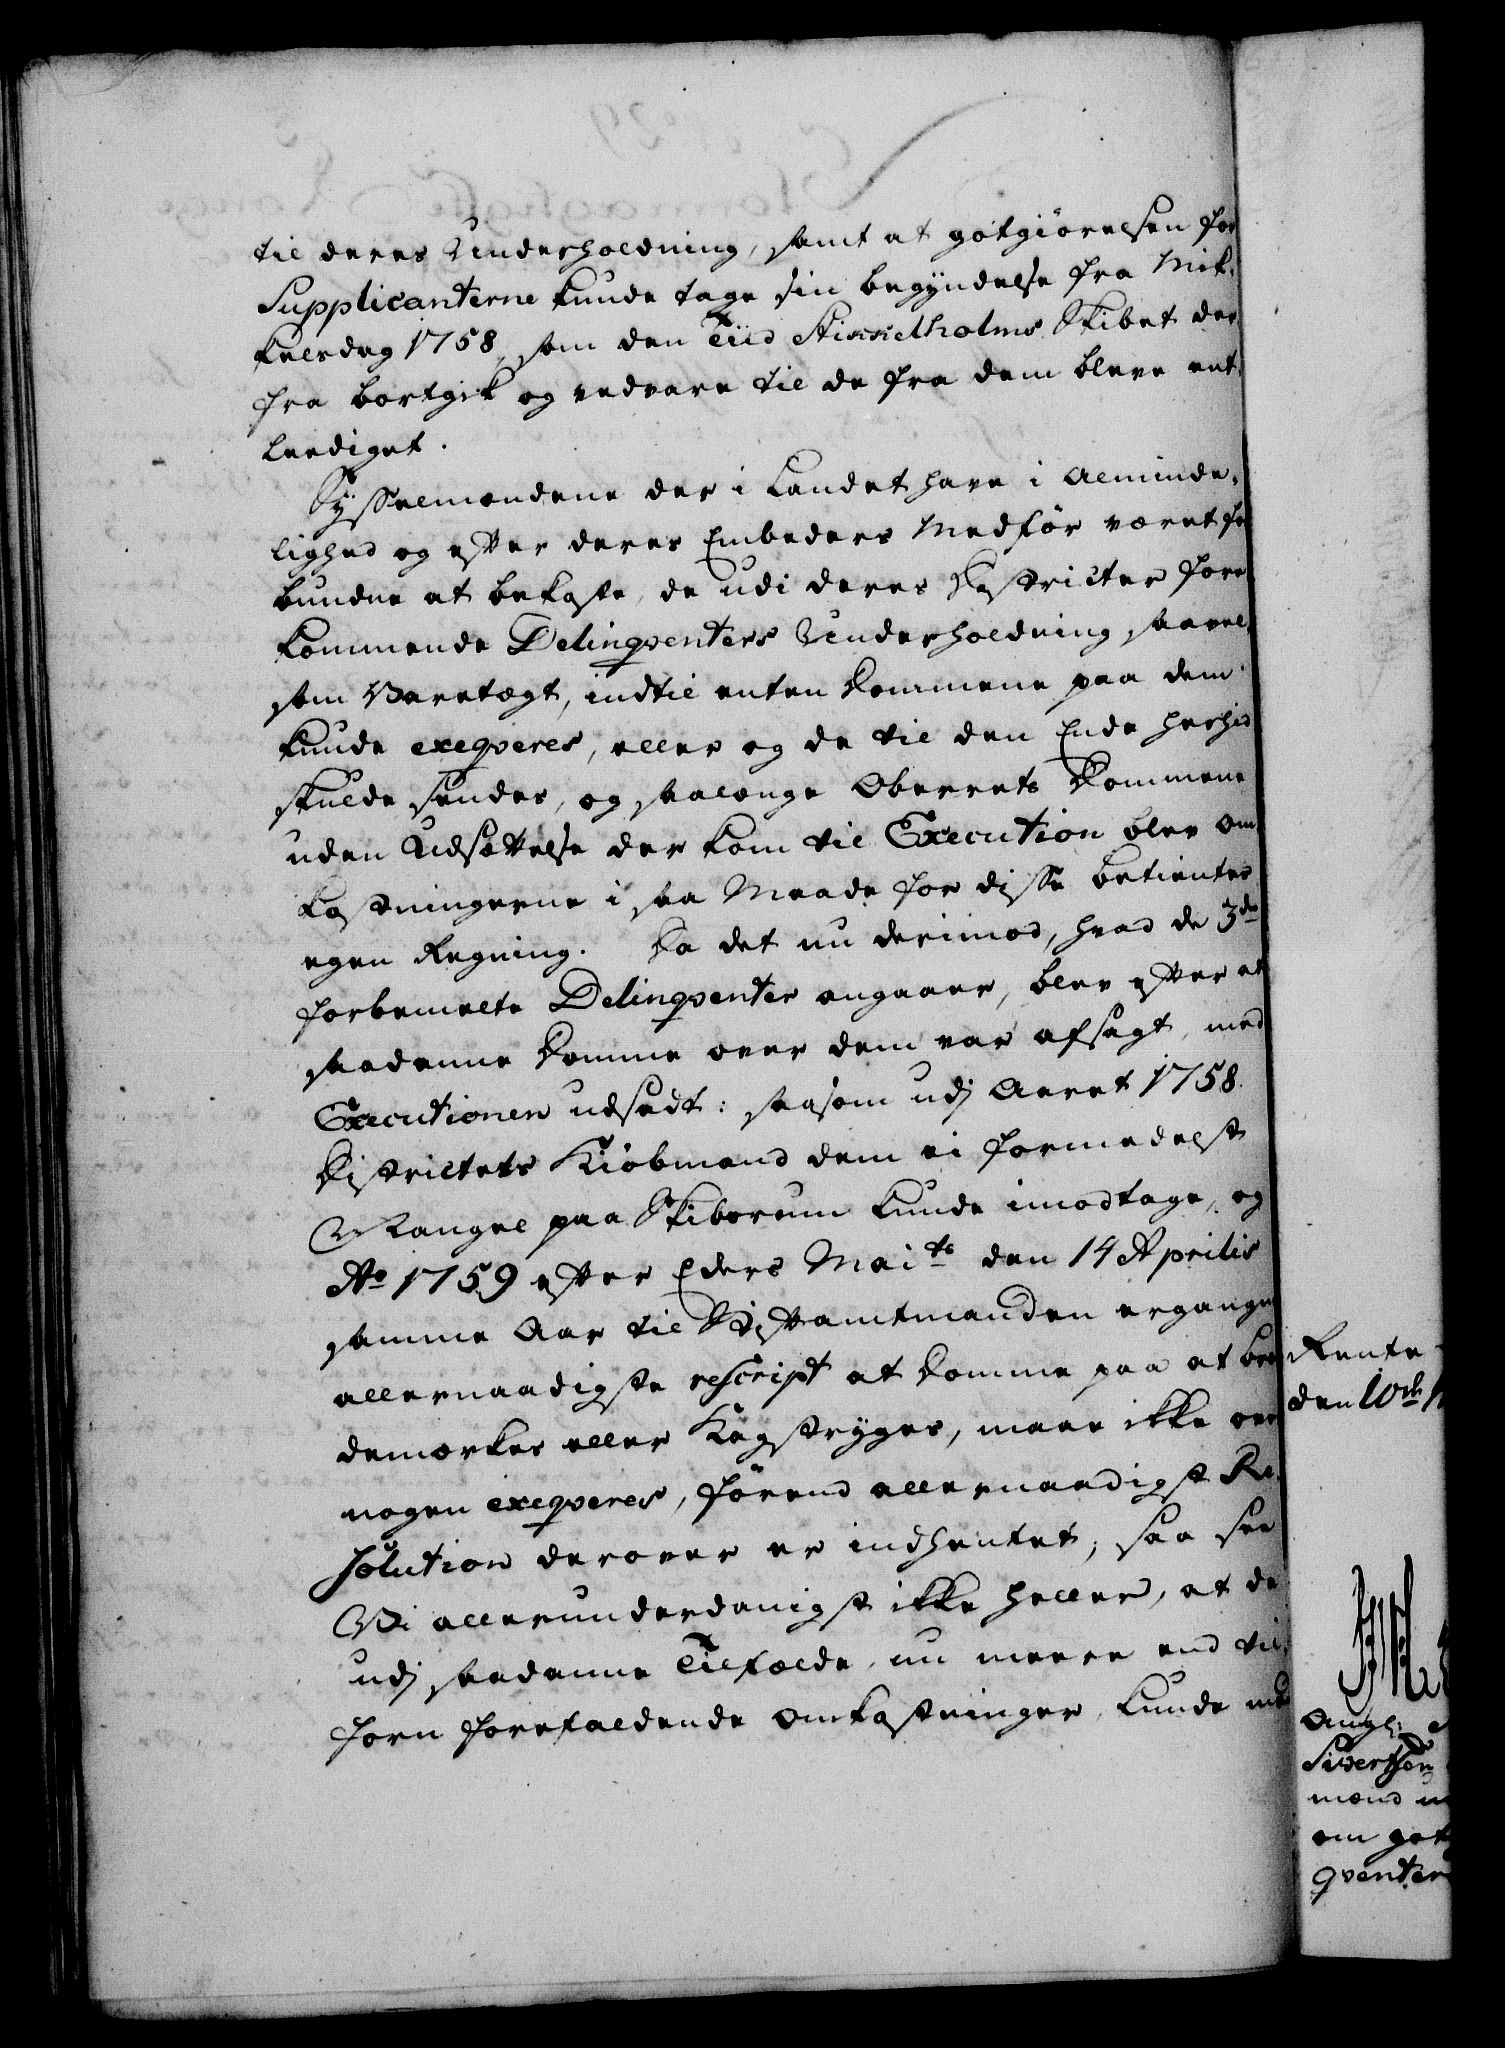 til deres Underholdning, samt at godtgiörelsen for
Supplicanterne kunde tage sin begyndelse fra Mik-
kelsdag 1758, som den Tiid Stikkelholms Skibet der
fra bortgik og vedvare til de fra dem bleve ent-
lediget.
Sysselmændene der i Landet have i Alminde-
lighed og efter deres Embeders Medför været for
bundne at bekoste, de udi deres Districter fore
kommende Delinqventers Underholdning, saavel
som Varetægt, indtil enten Dommene paa dem
kunde exeqveres, eller og de til den Ende herhid
skulde sendes, og saalænge Oberrets Dommene
uden Udsættelse der kom til Execution blev Om
kostningerne i saa Maade for disse betientes
egen Regning. Da det nu derimod, hvad de 3de
forbemelte Delinqventer angaaer, blev efter at
saadanne Domme over dem var afsagt, med
Executionen udsadt: saasom udj Aaret 1758.
Districtets Kiöbmand dem ei formedelst
Mangel paa Skibsrum kunde imodtage, og
Ao 1759 efter Eders Maits den 14 Aprilis
samme Aar til Stiftamtmanden ergangne
allernaadigste rescript at Domme paa at bræn
demærkes eller Kagstryges, maae ikke over
nogen exeqveres, förend allernaadigst Re-
solution derover er indhentet; saa see
Vi allerunderdanigst ikke heller, at de
udj saadanne Tilfælde, nu meere end til-
forn forefaldende Omkostninger, kunde med
Rente
den 10de
Angl:
Sivertsen
mænd
om got
qventer